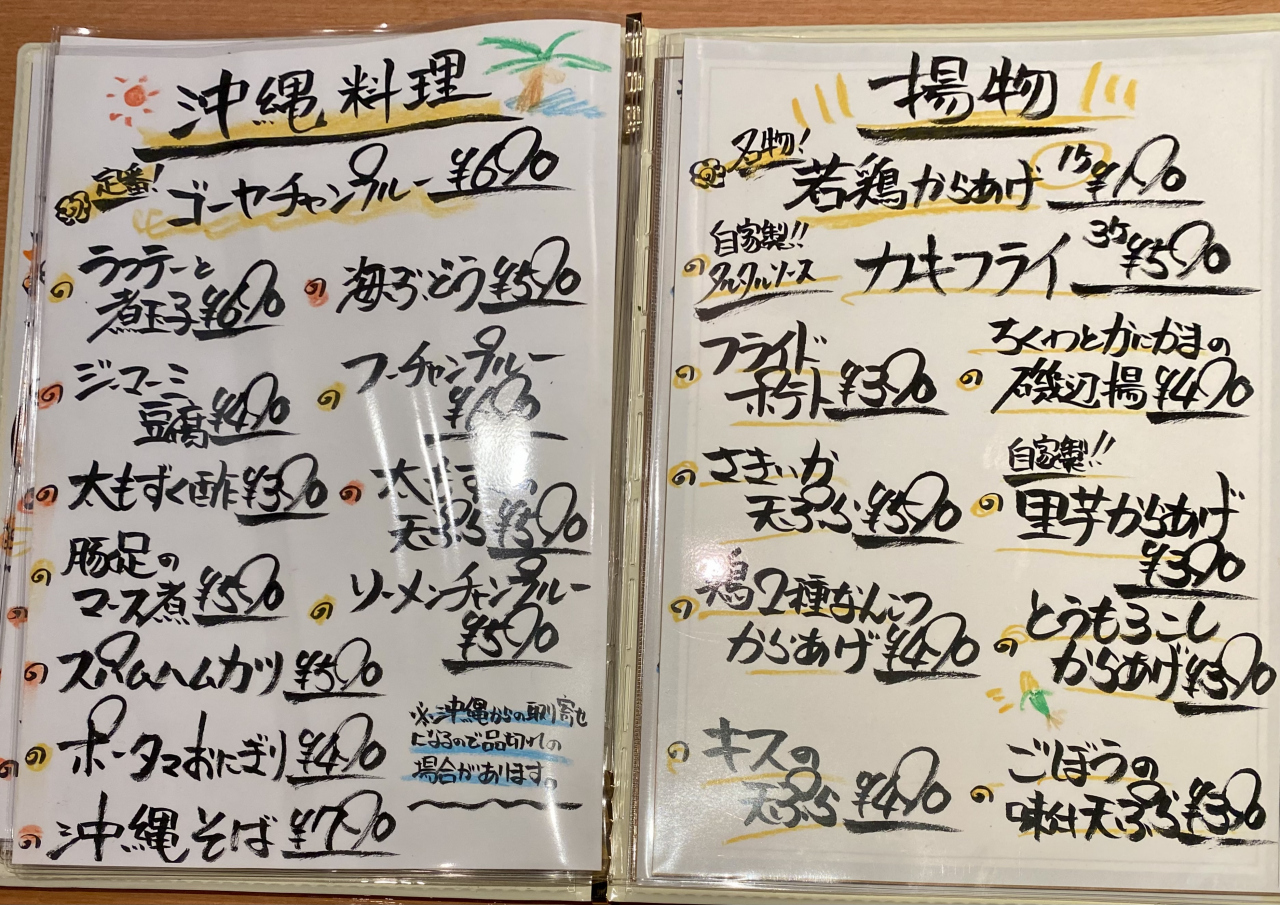 沖縄料理
定番!
ゴーヤチャンプルー ¥690
ラフテーと
煮玉子 ¥690
海ぶどう ¥590
ジーマーミ
豆腐 ¥490
フーチャンプルー
太もずく酢 ¥390
太もずくの
天ぷら ¥590
豚足の
マース煮 ¥590
ソーメンチャンプルー
¥590
スパムハムカツ ¥590
ポークタマおにぎり ¥490
※沖縄からの取り寄せ
になるので品切れの
場合があります。
沖縄そば ¥790
揚物
名物!
若鶏からあげ 1ケ ¥190
自家製!!
タルタルソース
カキフライ 3ケ ¥590
フライド
ポテト ¥390
ちくわとかにかまの
磯辺揚 ¥490
さきいか
天ぷら ¥590
自家製!!
里芋からあげ
¥390
鶏2種なんこつ
からあげ ¥490
とうもろこし
からあげ ¥390
キスの
天ぷら ¥490
ごぼうの
味付天ぷら ¥390